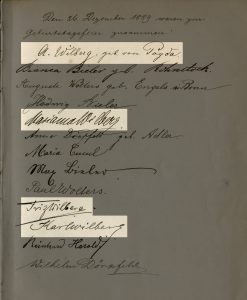 Den 26. Dezember 1889 waren zur
Geburtstagsfeier zusammen:
A. Wilberg, geb. von
geb.
Auguste Wolters geb. Engels a. Bonn
Hedwig
Marianne Wilberg
Anna Dörpfeld geb. Adler
Maria
Max
Paul Wolters.
Fritz Wilberg.
Karl Wilberg
Reinhard Herold
Wilhelm Dörpfeld